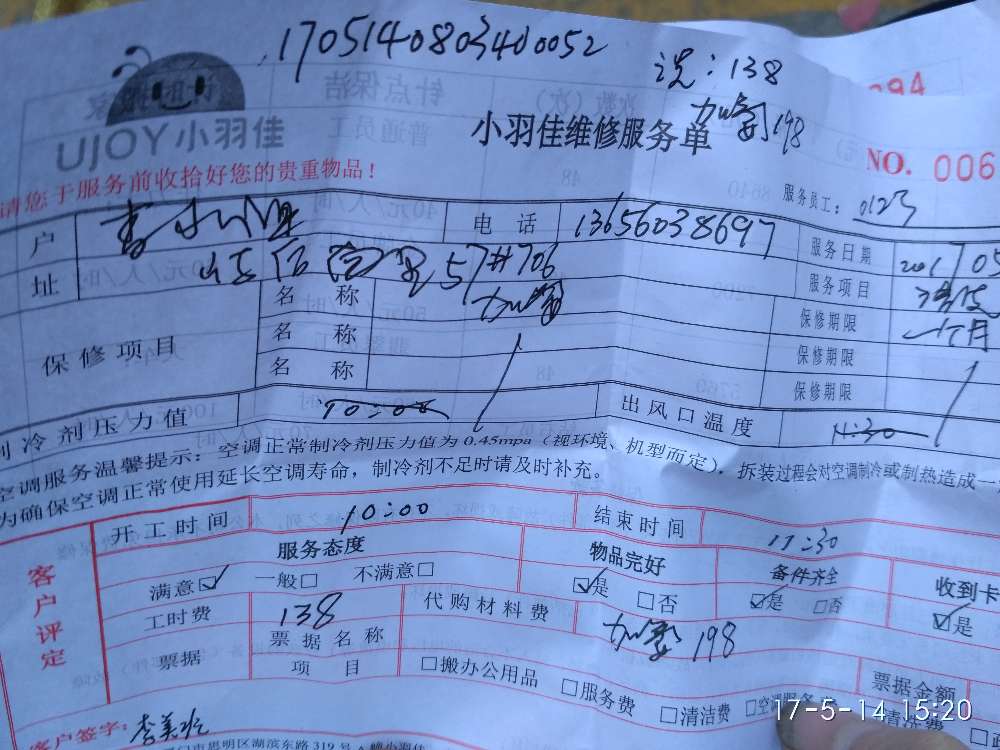 1705140803400052
洗:138
加氟198
UJOY 小羽佳
小羽佳维修服务单
NO. 006
请您于服务前收拾好您的贵重物品!
服务员工: 0123
户 电话 13656038697 服务日期
址 57#706 服务项目
保修项目
名称 加氟 保修期限 一个月
名称 保修期限
名称 保修期限
制冷剂压力值 10:00 出风口温度 11:30
空调服务温馨提示:空调正常制冷剂压力值为 0.45mpa(视环境、机型而定),拆装过程会对空调制冷或制热造成一
为确保空调正常使用延长空调寿命,制冷剂不足时请及时补充。
客户评定
开工时间 10:00 结束时间 11:30
服务态度 物品完好 备件齐全 收到卡
满意☑ 一般□ 不满意□ ☑是 □否 ☑是 □否 ☑是
工时费 138 代购材料费 加氟 198
票据 票据名称 项目 □搬办公用品 □服务费 □清洁费 票据金额
客户签字:
17-5-14 15:20